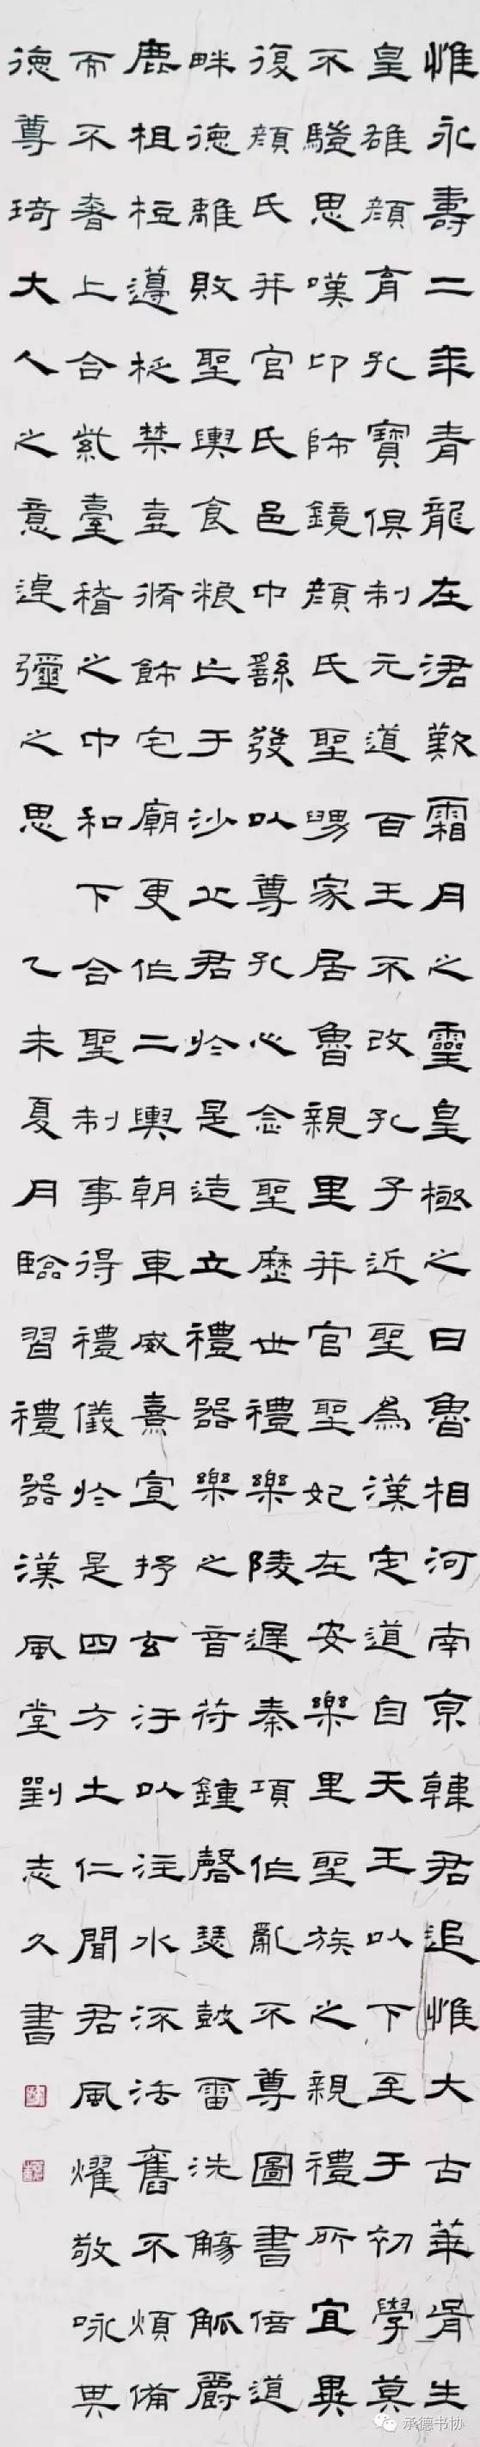 惟永壽二年青龍在涒歎霜月之靈皇極之日魯相河南京韓君追惟大古華胥生
皇雄顏育孔寶俱制元道百王不改孔子近聖為漢定道自天王以下至于初學莫
不驥思嘆卬師鏡顏氏聖舅家居魯親里并官聖妃在安樂里聖族之親禮所宜異
復顏氏并官氏邑中繇發以尊孔心念聖歷世禮樂陵遲秦項作亂不尊圖書倍道
畔德離敗聖輿食粮亡于沙丘君於是造立禮器樂之音符鍾磬瑟鼓雷洗觴觚爵
鹿柤梪籩柉禁壺脩飾宅廟更作二輿朝車威熹宣抒玄汙以注水流法舊不煩備
而不奢上合紫臺稽之中和下合聖制事得禮儀於是四方土仁聞君風燿敬咏其
德尊琦大人之意逴彌之思 乙未夏月臨習禮器漢風堂劉志久書
承德书协